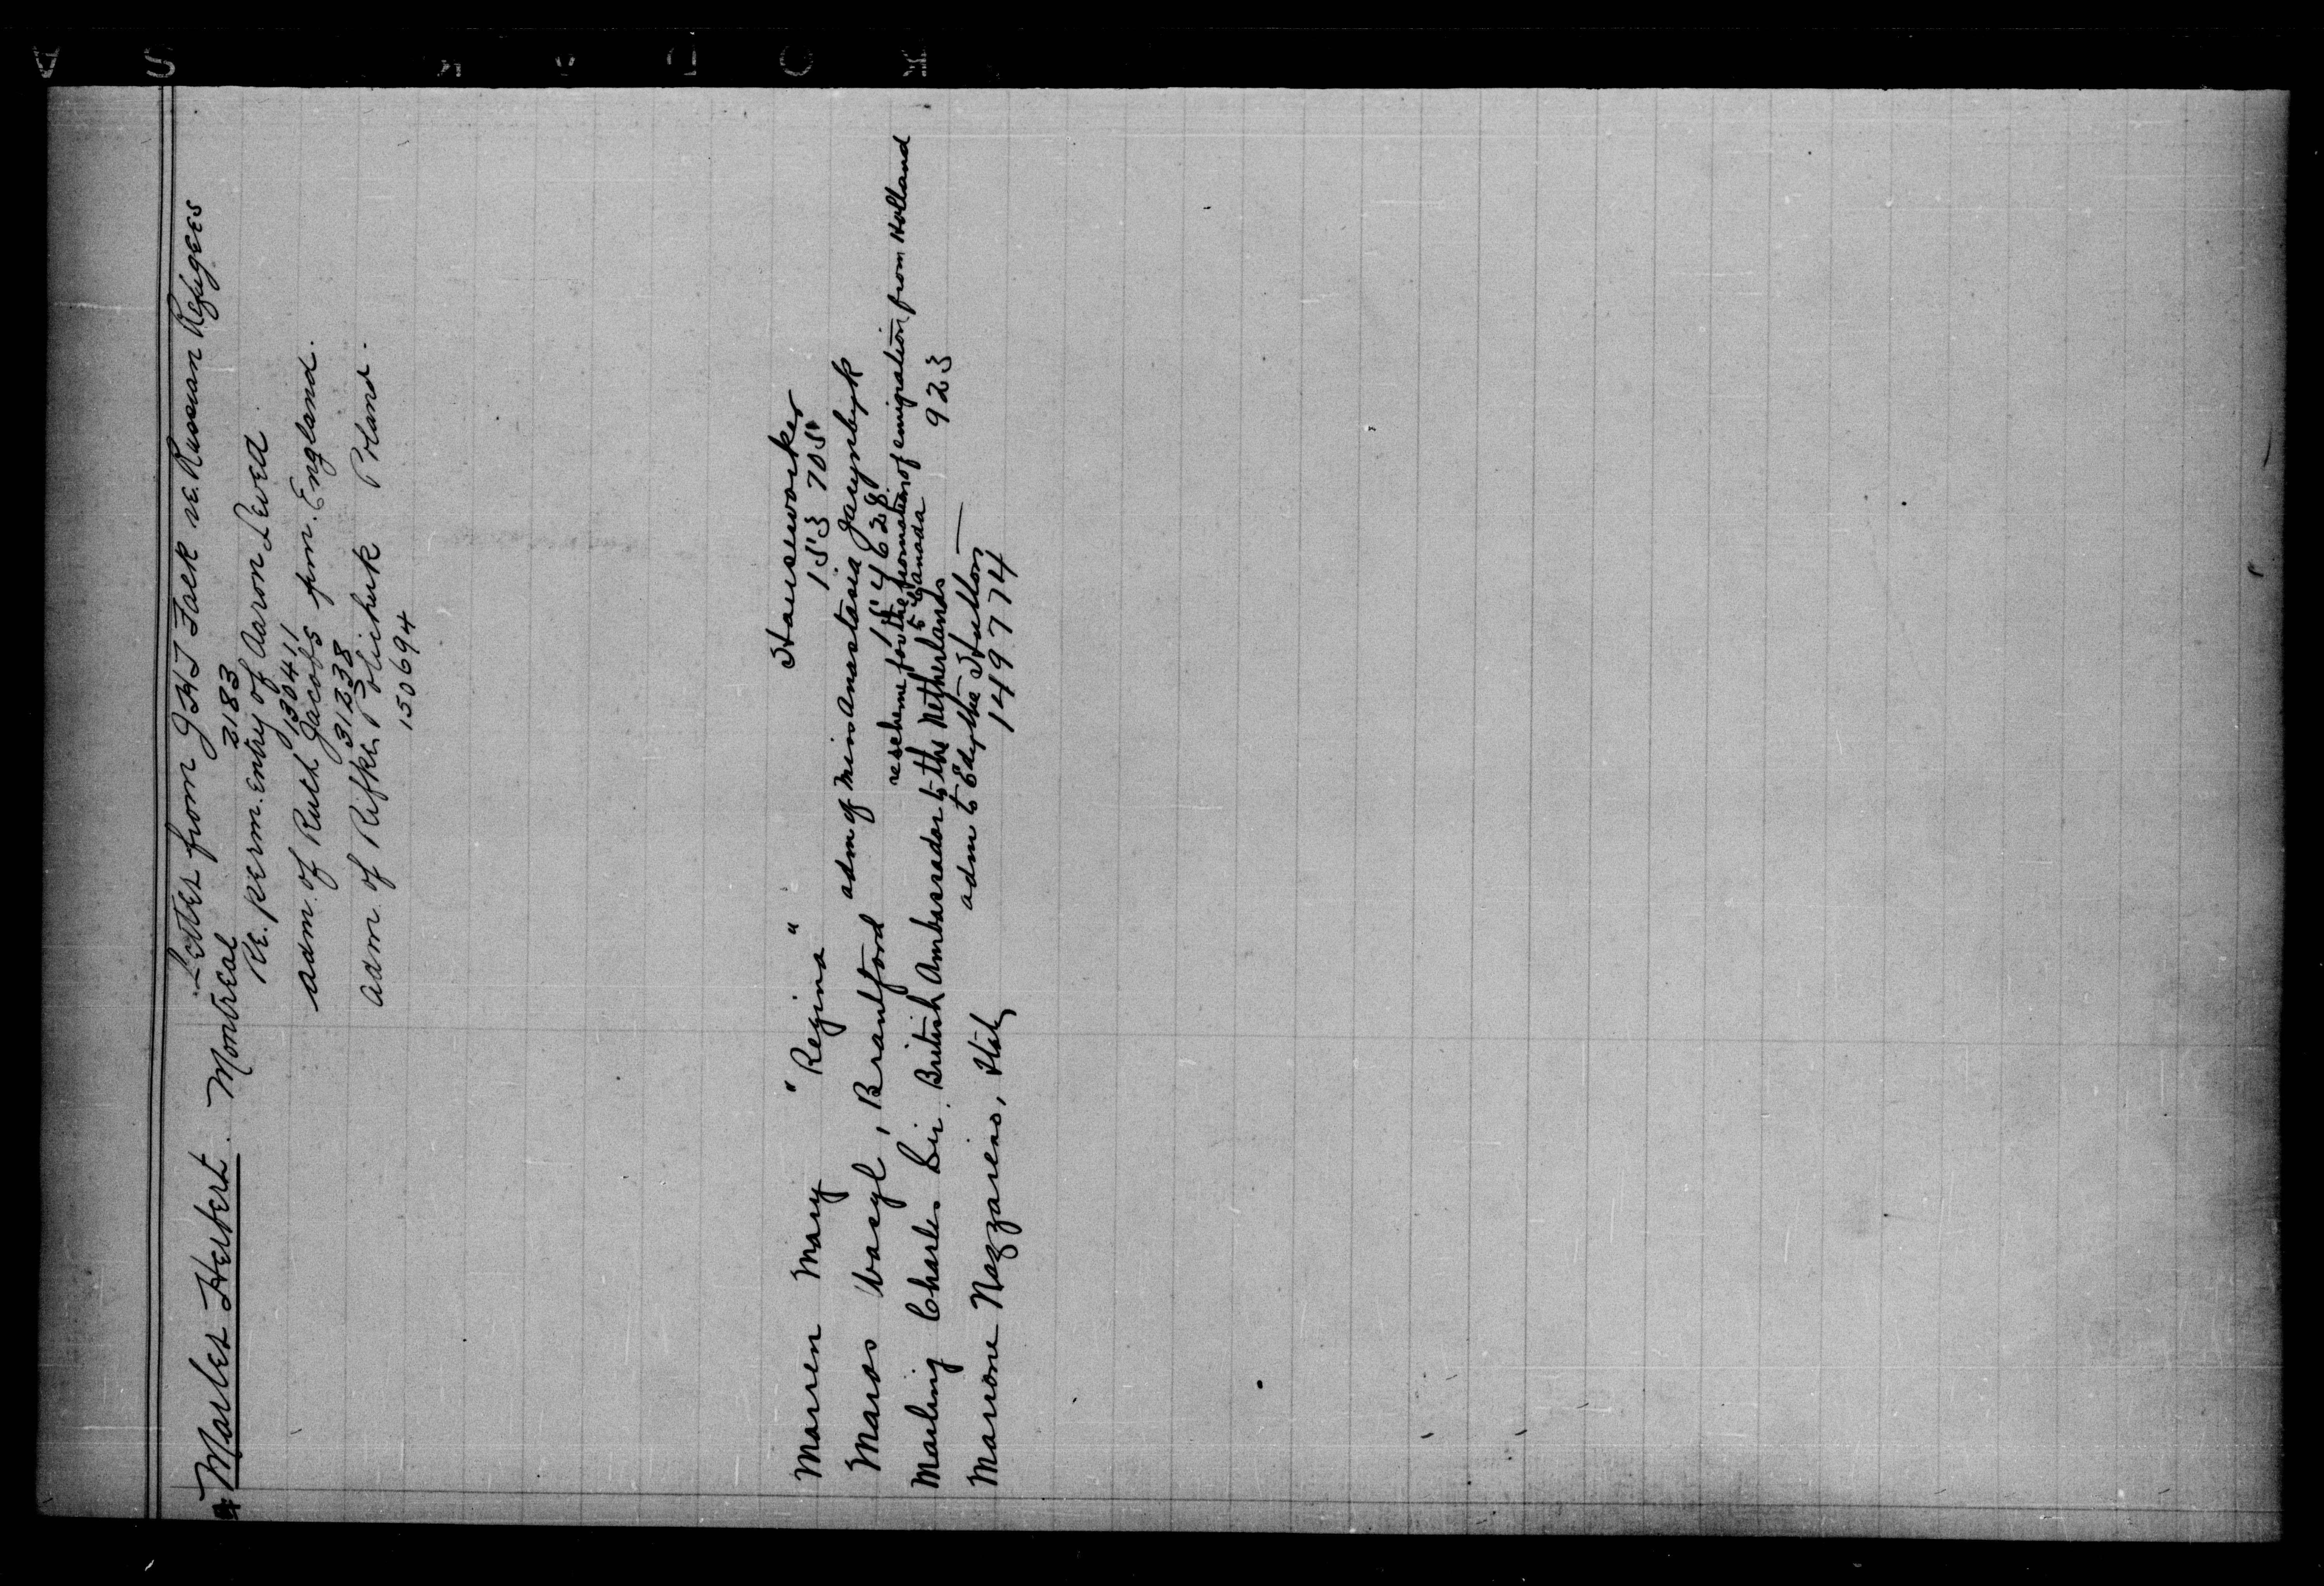 Marler Herbert. Montreal
Letter from J H T Falk re. Russian Refugees
3183
re. perm. entry of Aaron Lewed
13041
adm. of Ruth Jacobs frm. England.
31238
adm. of Rifke Polichuk Poland.
150694
Marren Mary "Regina" Houseworker
153 705
Maros Wasyl, Brantford adm of Miss Anastasia
154628
Marling Charles Sir. British Ambassador to the Netherlands
re scheme for the promotion of emigration from Holland
to Canada 923
Marrone Nazzareno, Italy adm to Edythe Hutton —
1497774
KODAK SA